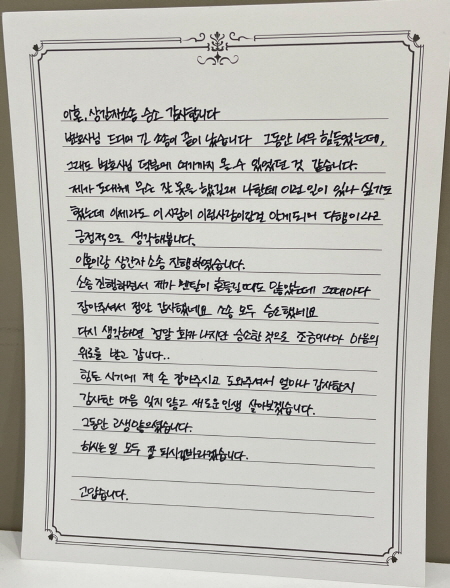 이혼, 상간자소송 승소 감사합니다
변호사님 드디어 긴 소송이 끝이 났습니다 그동안 너무 힘들었는데,
그래도 변호사님 덕분에 여기까지 올 수 있었던 것 같습니다.
제가 도대체 무슨 잘못을 했길래 나한테 이런 일이 있나 싶기도
했는데 이제라도 이 사람이 이런사람이란걸 알게되어 다행이라고
긍정적으로 생각해봅니다.
이혼이랑 상간자 소송 진행하였습니다.
소송 진행하면서 제가 멘탈이 흔들릴때도 많았는데 그때마다
잡아주셔서 정말 감사했네요 소송 모두 승소했네요
다시 생각하면 정말 화가 나지만 승소한 것으로 조금이나마 마음의
위로를 받고 갑니다..
힘든 시기에 제 손 잡아주시고 도와주셔서 얼마나 감사한지
감사한 마음 잊지 않고 새로운 인생 살아보겠습니다.
그동안 고생많으셨습니다.
하시는 일 모두 잘 되시길바라겠습니다.
고맙습니다.